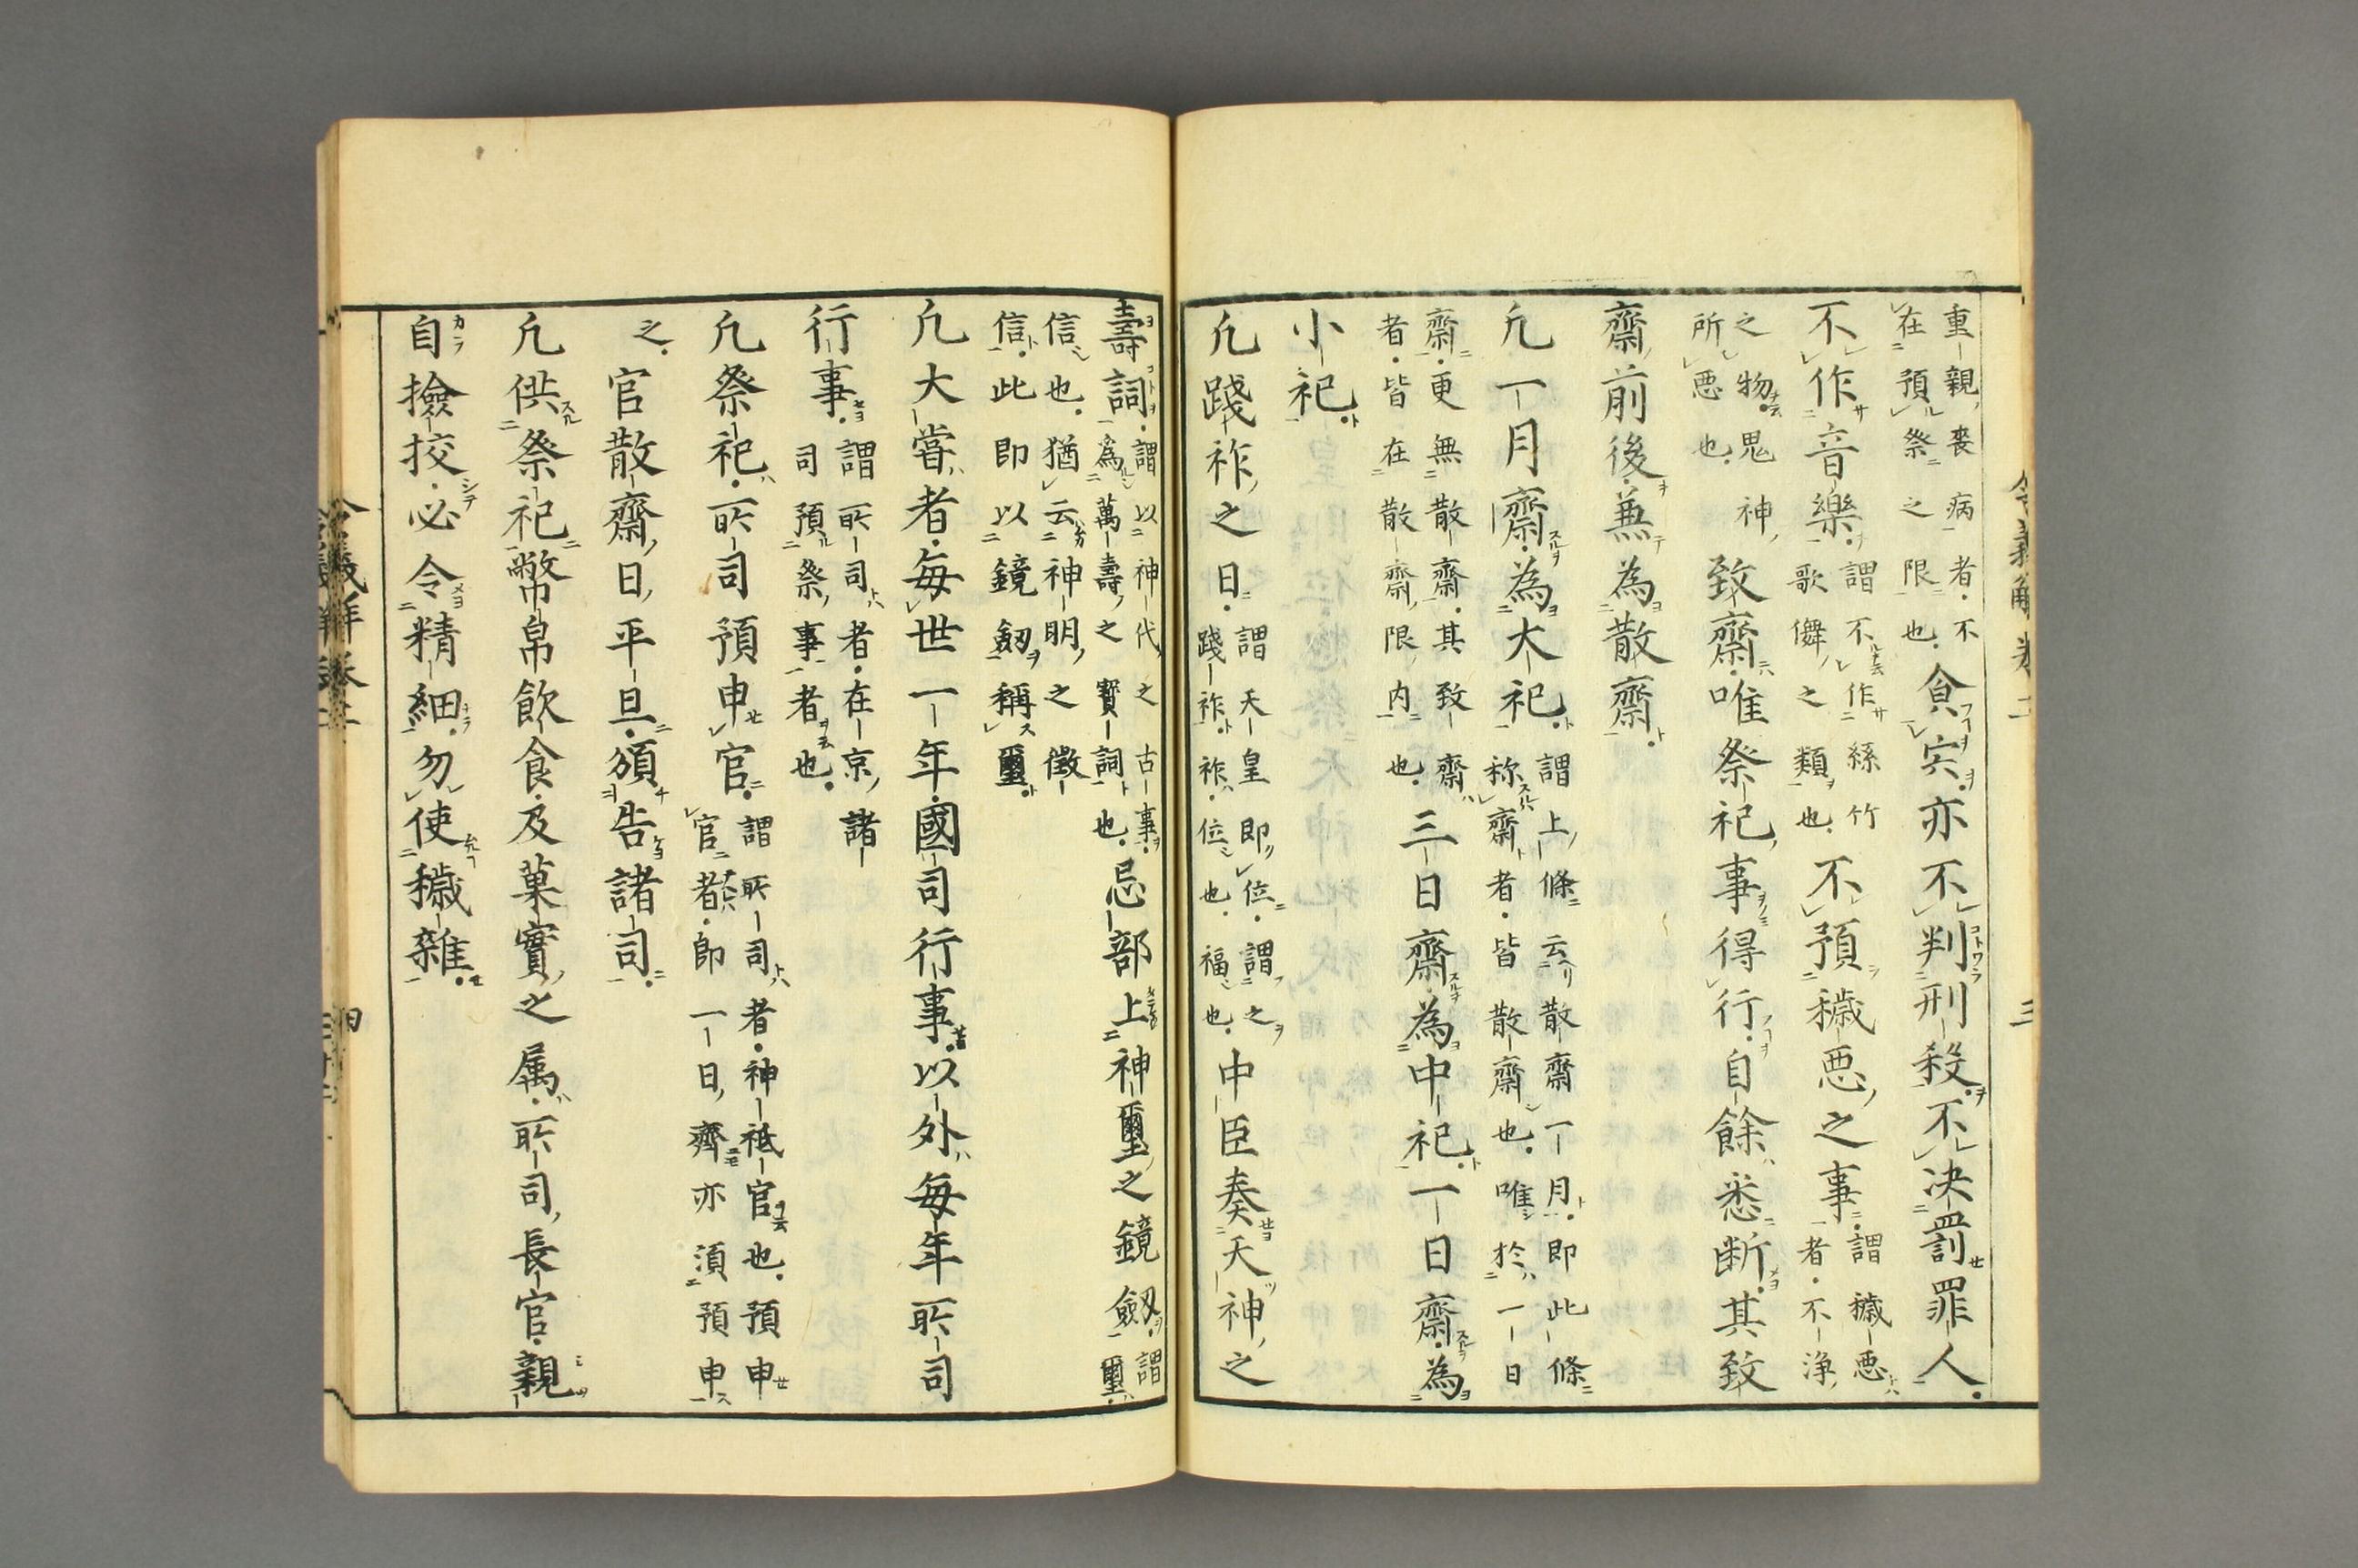 重親喪病者不
在預祭之限也
食宍亦不判刑殺不決罰罪人
不作音樂
謂不作絲竹
歌儛之類也
不預穢悪之事
謂穢悪
者不浄
之物鬼神
所悪也
致齋唯祭祀事得行自餘悉断其致
齋前後兼為散齋
凡一月齋為大祀
謂上條云散齋一月即此條
称齋者皆散齋也唯於一日
齋更無散齋其致齋
者皆在散齋限内也
三日齋為中祀一日齋為
小祀
凡踐祚之日
謂天皇即位謂之
踐祚祚位也福也
中臣奏天神之
壽詞
謂以神代之古事
為萬壽之寶詞也
忌部上神璽之鏡劔
謂
璽
信也猶云神明之徴
信此即以鏡劔稱璽
凡大嘗者毎世一年國司行事以外毎年所司
行事
謂所司者在京諸
司預祭事者也
凡祭祀所司預申官
謂所司者神祇官也預申
官者即一日齋亦須預申
之
官散齋日平旦頒告諸司
凡供祭祀幣帛飲食及菓實之属所司長官親
自撿挍必令精細勿使穢雜